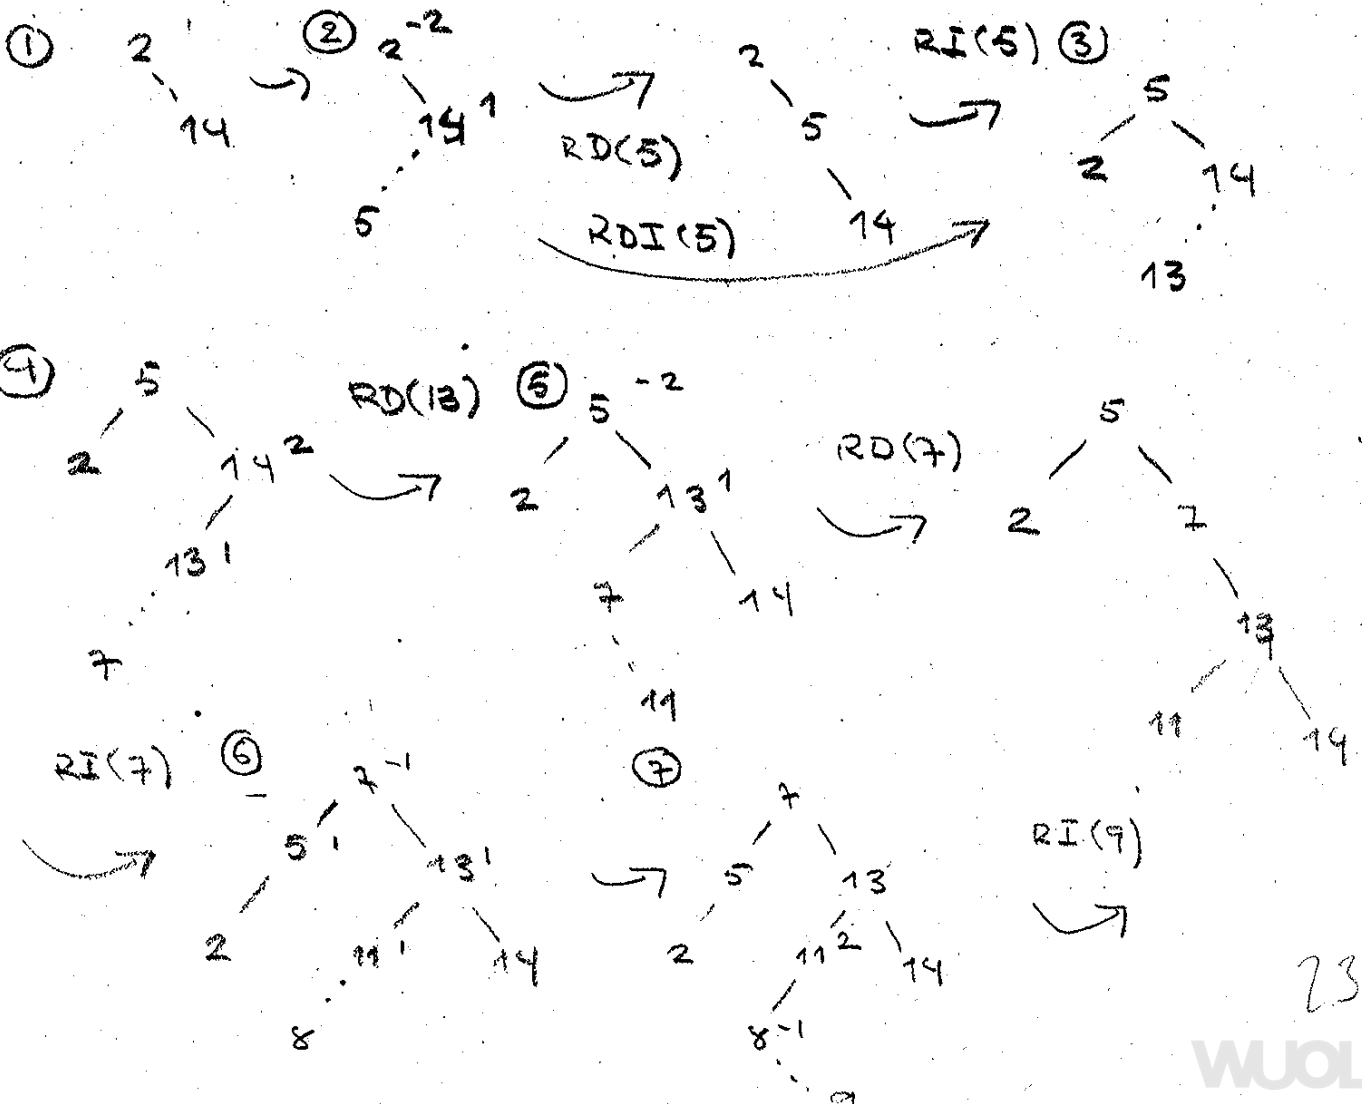 ① 2
14
② 2 -2
14 1
5
RD(5)
RDI(5)
2
5
14
RI(5) ③
5
2 14
13
④ 5
2 14 2
13 1
7
RD(13) ⑤
5 -2
2 13 1
7 14
11
RD(7)
5
2 7
13
11 14
RI(7) ⑥
7 -1
5 1 13 1
2 11 1 14
8
⑦
7
5 13
2 11 2 14
8 -1
9
RI(9)
23
WUOL